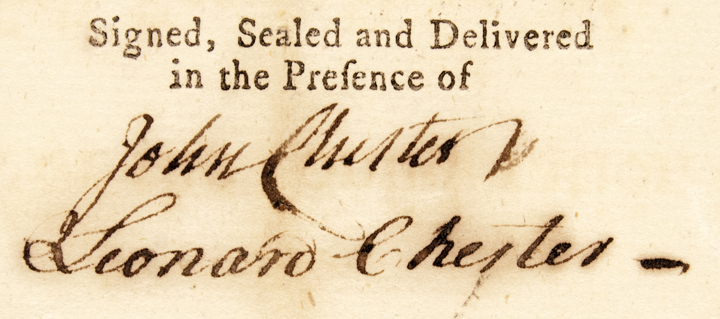 Signed, Sealed and Delivered
in the Preſence of
John Chester
Leonard Chester –